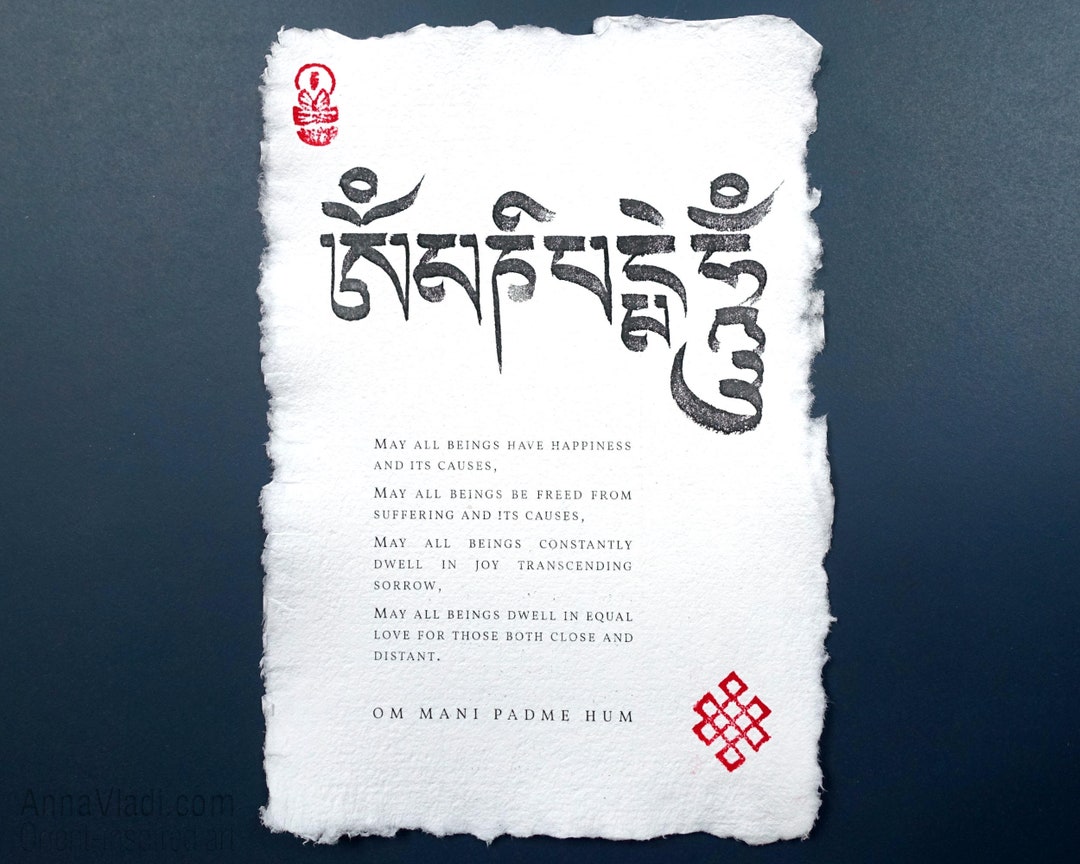 ༀམཎིཔདྨེཧཱུྃ
MAY ALL BEINGS HAVE HAPPINESS
AND ITS CAUSES,
MAY ALL BEINGS BE FREED FROM
SUFFERING AND ITS CAUSES,
MAY ALL BEINGS CONSTANTLY
DWELL IN JOY TRANSCENDING
SORROW,
MAY ALL BEINGS DWELL IN EQUAL
LOVE FOR THOSE BOTH CLOSE AND
DISTANT.
OM MANI PADME HUM
AnnaVladi.com
Orient-inspired art